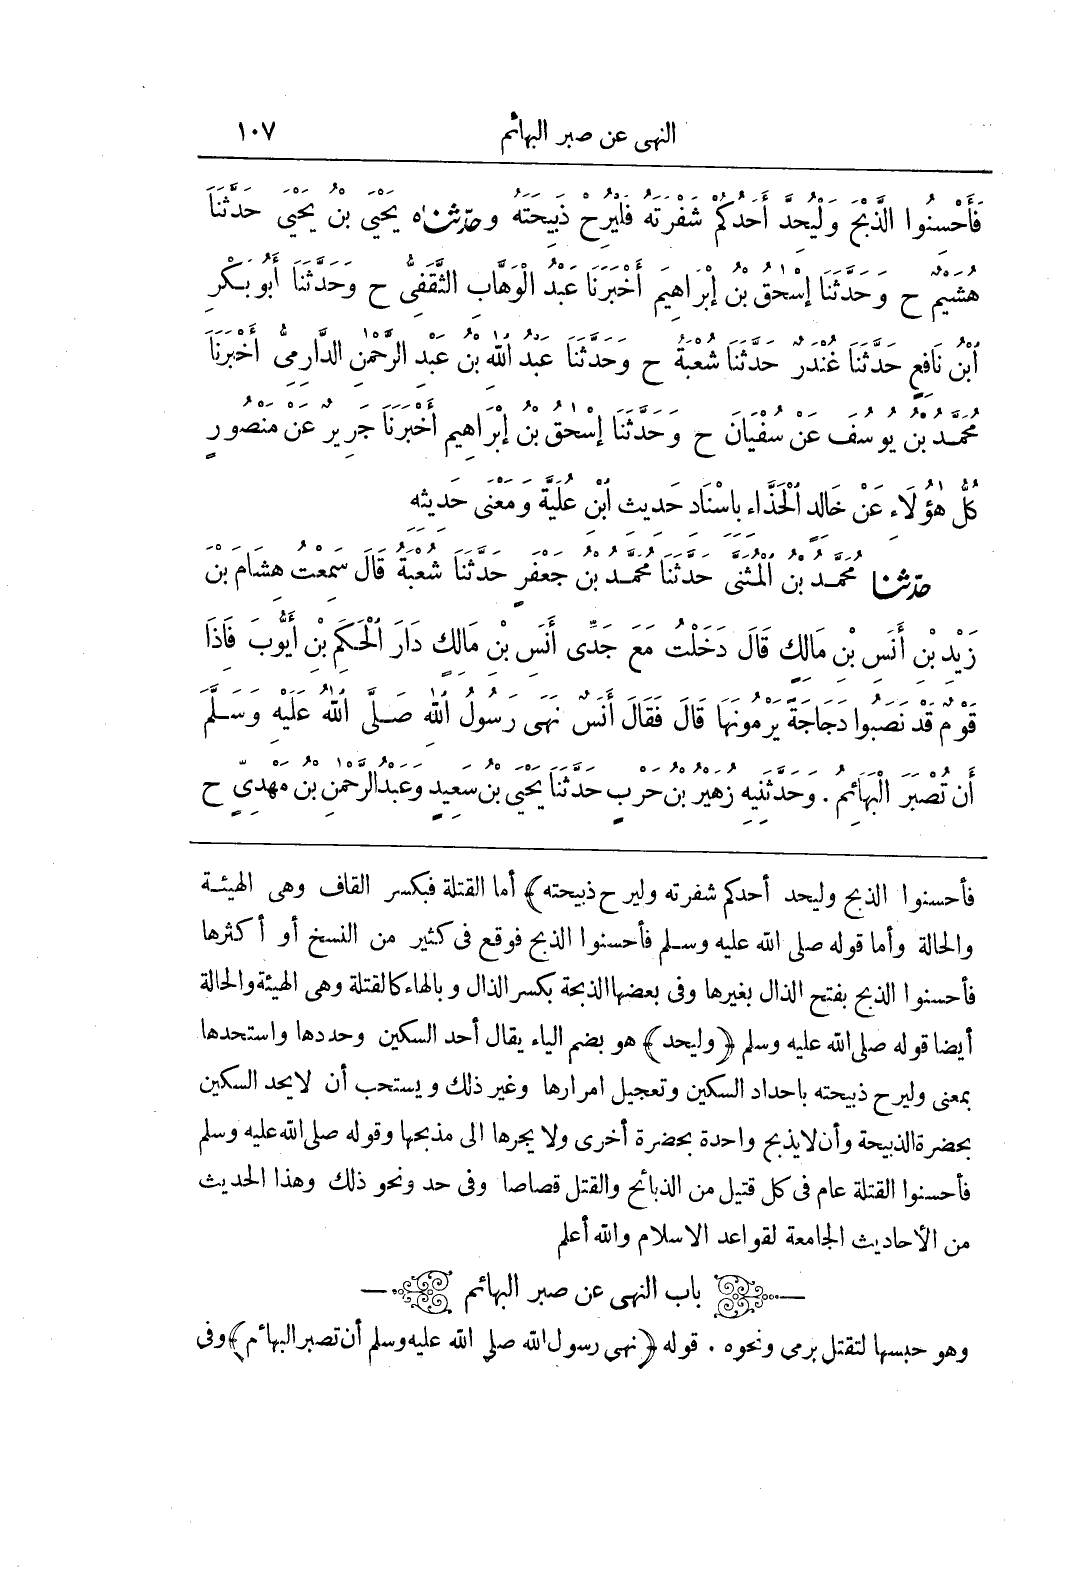 النهى عن صبر البهائم ١٠٧
فَأَحْسِنُوا الذَّبْحَ وَلْيُحِدَّ أَحَدُكُمْ شَفْرَتَهُ فَلْيُرِحْ ذَبِيحَتَهُ وحَدَّثَنَاه يَحْيَى بْنُ يَحْيَى حَدَّثَنَا
هُشَيْمٌ ح وَحَدَّثَنَا إِسْحَقُ بْنُ إِبْرَاهِيمَ أَخْبَرَنَا عَبْدُ الْوَهَّابِ الثَّقَفِىُّ ح وَحَدَّثَنَا أَبُو بَكْرِ
ابْنُ نَافِعٍ حَدَّثَنَا غُنْدَرٌ حَدَّثَنَا شُعْبَةُ ح وَحَدَّثَنَا عَبْدُ اللهِ بْنُ عَبْدِ الرَّحْمٰنِ الدَّارِمِىُّ أَخْبَرَنَا
مُحَمَّدُ بْنُ يُوسُفَ عَنْ سُفْيَانَ ح وَحَدَّثَنَا إِسْحٰقُ بْنُ إِبْرَاهِيمَ أَخْبَرَنَا جَرِيرٌ عَنْ مَنْصُورٍ
كُلُّ هٰؤُلَاءِ عَنْ خَالِدٍ الْحَذَّاءِ بِاسْنَادِ حَدِيثِ ابْنِ عُلَيَّةَ وَمَعْنَى حَدِيثِهِ
حَدَّثَنَا مُحَمَّدُ بْنُ الْمُثَنَّى حَدَّثَنَا مُحَمَّدُ بْنُ جَعْفَرٍ حَدَّثَنَا شُعْبَةُ قَالَ سَمِعْتُ هِشَامَ بْنَ
زَيْدِ بْنِ أَنَسِ بْنِ مَالِكٍ قَالَ دَخَلْتُ مَعَ جَدِّى أَنَسِ بْنِ مَالِكٍ دَارَ الْحَكَمِ بْنِ أَيُّوبَ فَاذَا
قَوْمٌ قَدْ نَصَبُوا دَجَاجَةً يَرْمُونَهَا قَالَ فَقَالَ أَنَسٌ نَهَى رَسُولُ اللهِ صَلَّى اللهُ عَلَيْهِ وَسَلَّمَ
أَنْ تُصْبَرَ الْبَهَائِمُ . وَحَدَّثَنِيهِ زُهَيْرُ بْنُ حَرْبٍ حَدَّثَنَا يَحْيَى بْنُ سَعِيدٍ وَعَبْدُ الرَّحْمٰنِ بْنُ مَهْدِىٍّ ح
فأحسنوا الذبح وليحد أحدكم شفرته وليرح ذبيحته﴾ أما القتلة فبكسر القاف وهى الهيئة
والحالة وأما قوله صلى الله عليه وسلم فأحسنوا الذبح فوقع فى كثير من النسخ أو أكثرها
فأحسنوا الذبح بفتح الذال بغيرها وفى بعضها الذبحة بكسر الذال وبالهاء كالقتلة وهى الهيئة والحالة
أيضا قوله صلى الله عليه وسلم ﴿وليحد﴾ هو بضم الياء يقال أحد السكين وحددها واستحدها
بمعنى وليرح ذبيحته باحداد السكين وتعجيل امرارها وغير ذلك ويستحب أن لايحد السكين
بحضرة الذبيحة وأن لايذبح واحدة بحضرة أخرى ولا يجرها الى مذبحها وقوله صلى الله عليه وسلم
فأحسنوا القتلة عام فى كل قتيل من الذبائح والقتل قصاصا وفى حد ونحو ذلك وهذا الحديث
من الأحاديث الجامعة لقواعد الاسلام والله أعلم
باب النهى عن صبر البهائم
وهو حبسها لتقتل برمى ونحوه . قوله ﴿نهى رسول الله صلى الله عليه وسلم أن تصبر البهائم﴾ وفى